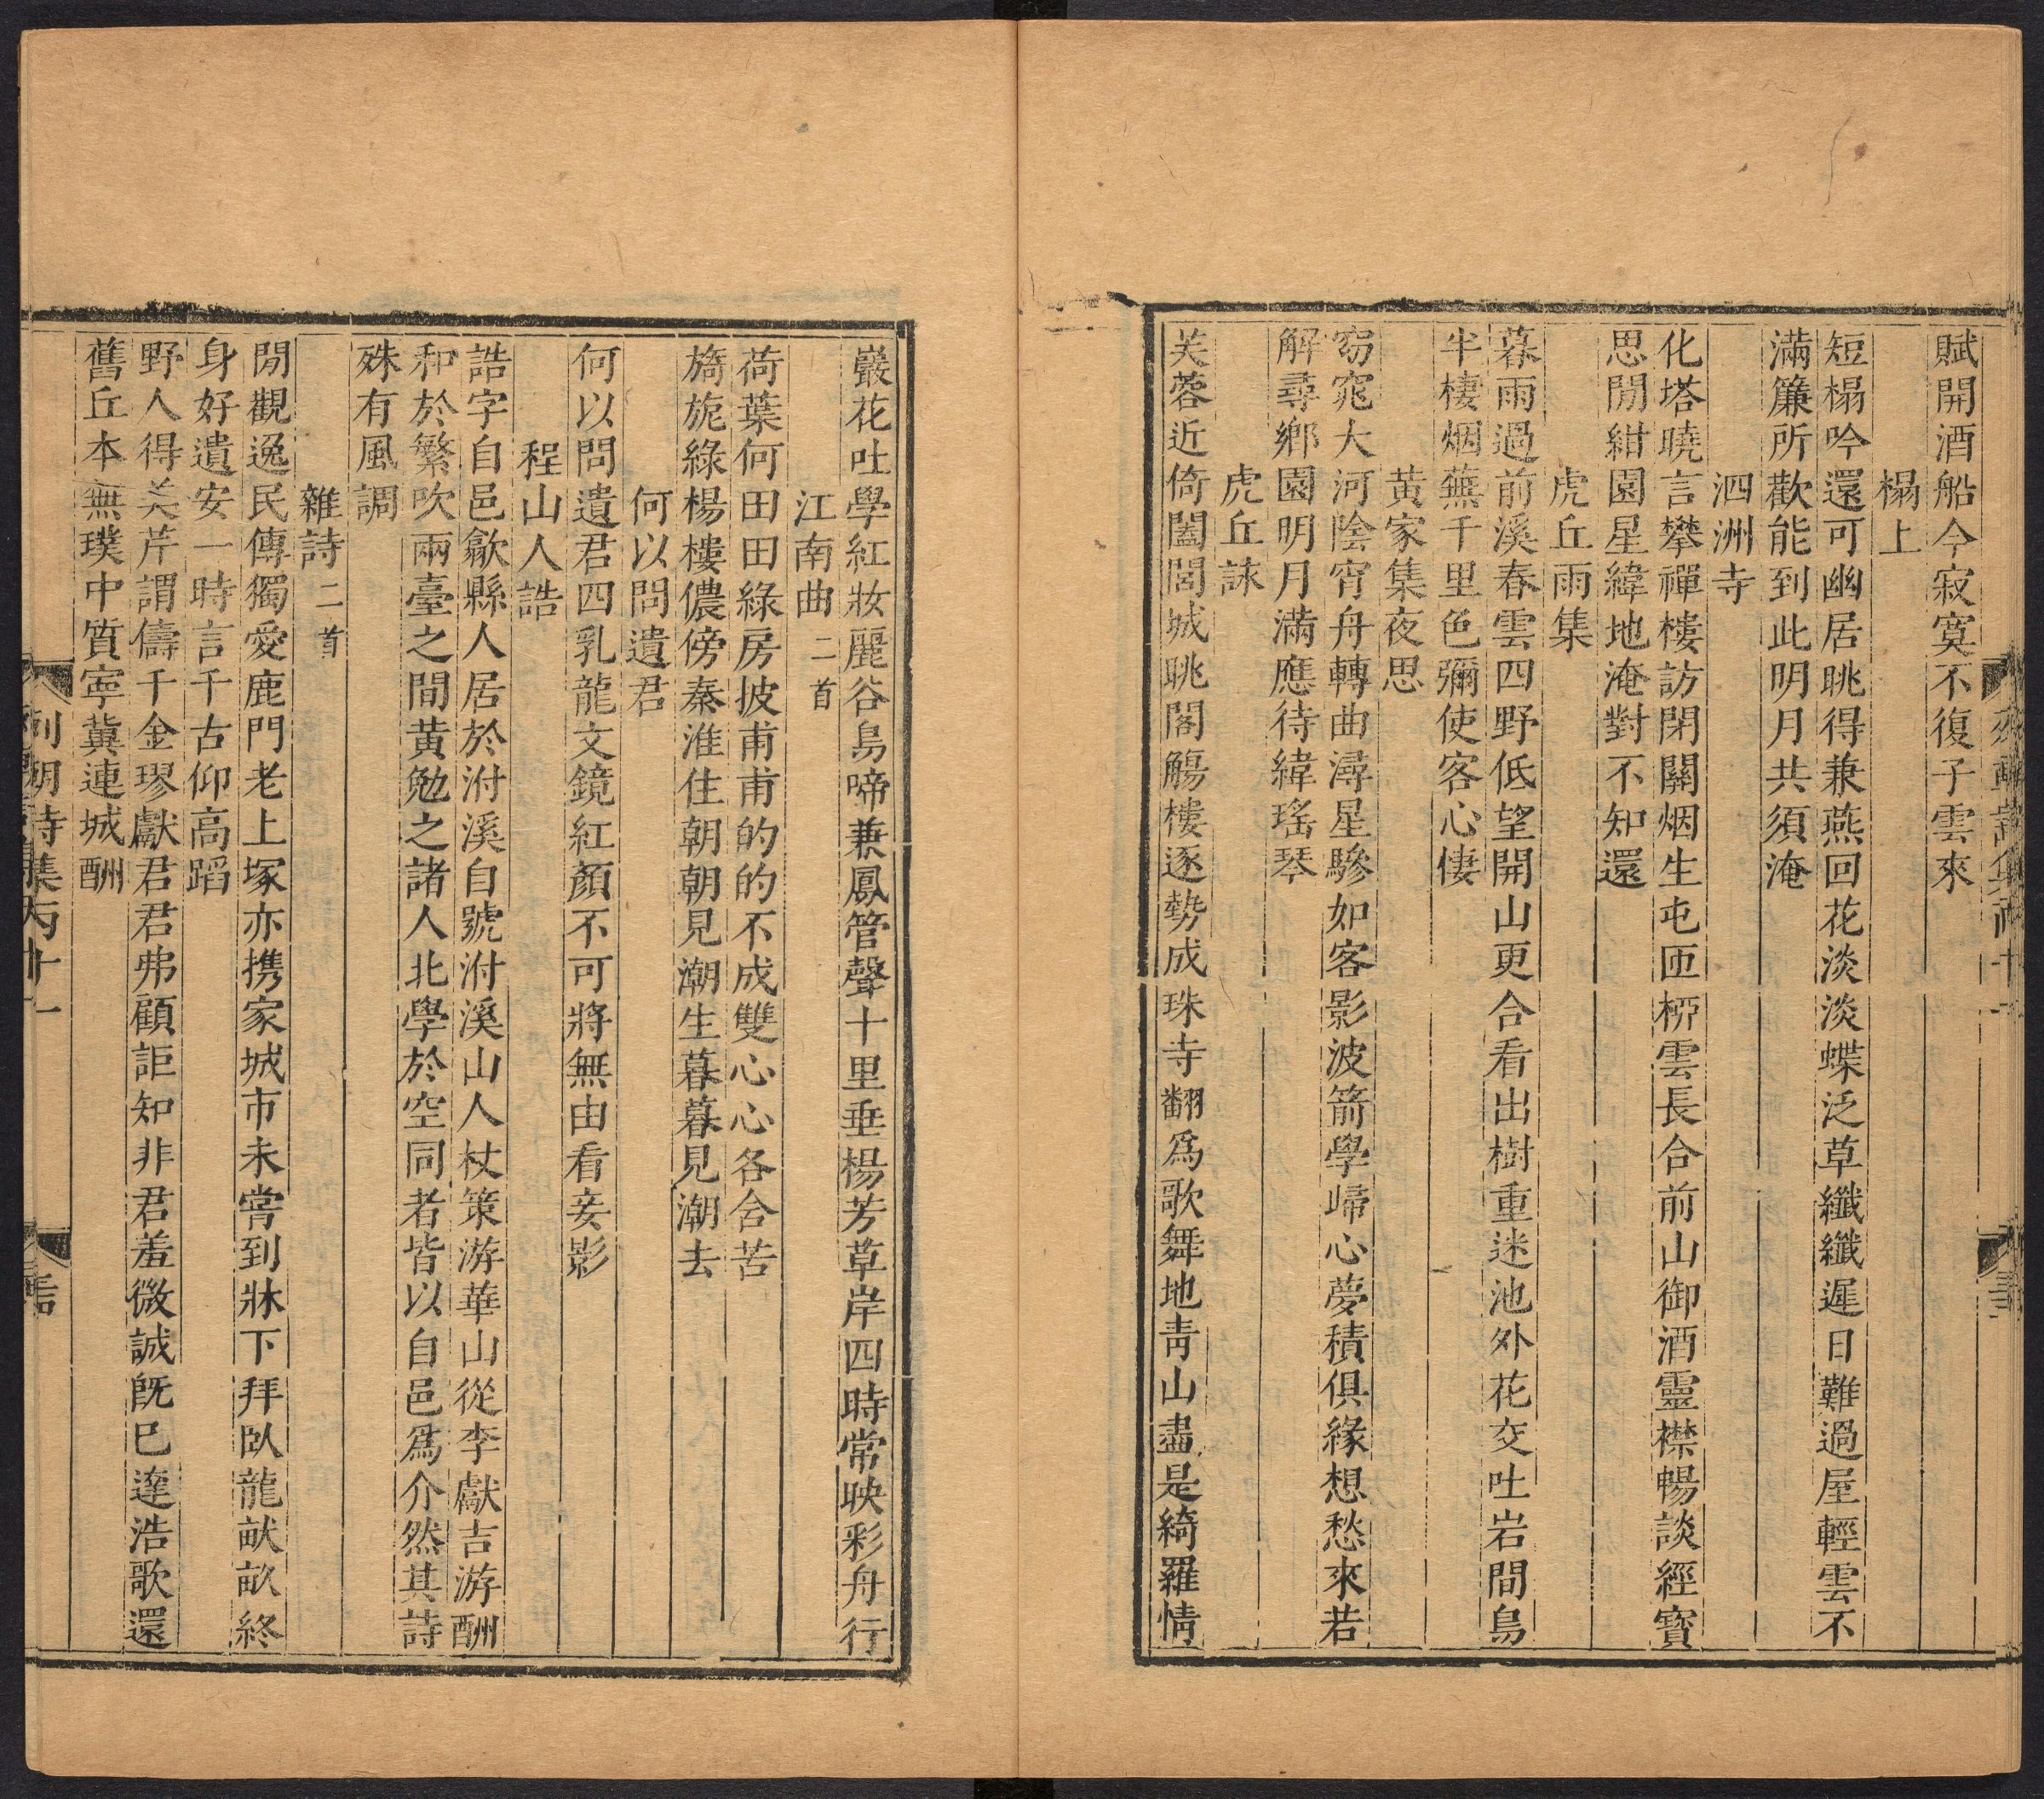 賦開酒船今寂寞不復子雲來
榻上
短榻吟還可幽居眺得兼燕回花淡淡蝶泛草纖纖遲日難過屋輕雲不
滿簾所歡能到此明月共須淹
泗洲寺
化塔曉言攀禪樓訪閑關烟生屯匝栁雲長合前山御酒靈襟暢談經寶
思閒紺園星緯地淹對不知還
虎丘雨集
暮雨過前溪春雲四野低望開山更合看出樹重迷池外花交吐岩間鳥
半棲烟蕪千里色彌使客心悽
黃家集夜思
窈窕大河陰宵舟轉曲潯星驂如客影波箭學歸心夢積俱緣想愁來若
解尋鄉園明月滿應待緯瑤琴
虎丘詠
芙蓉近倚闔閭城眺閣觴樓逐勢成珠寺翻爲歌舞地青山盡是綺羅情
巖花吐學紅妝麗谷鳥啼兼鳳管聲十里垂楊芳草岸四時常映彩舟行
江南曲二首
荷葉何田田綠房披甫甫的的不成雙心心各含苦
旖旎綠楊樓儂傍秦淮住朝朝見潮生暮暮見潮去
何以問遺君
何以問遺君四乳龍文鏡紅顏不可將無由看妾影
程山人誥
誥字自邑歙縣人居於泭溪自號泭溪山人杖策游華山從李獻吉游酬
和於繁吹兩臺之間黃勉之諸人北學於空同者皆以自邑爲介然其詩
殊有風調
雜詩二首
閒觀逸民傳獨愛鹿門老上塚亦携家城市未嘗到牀下拜臥龍畎畝終
身好遺安一時言千古仰高蹈
野人得美芹謂儔千金璆獻君君弗顧詎知非君羞微誠旣已達浩歌還
舊丘本無璞中質寧冀連城酬
列朝詩集丙十一